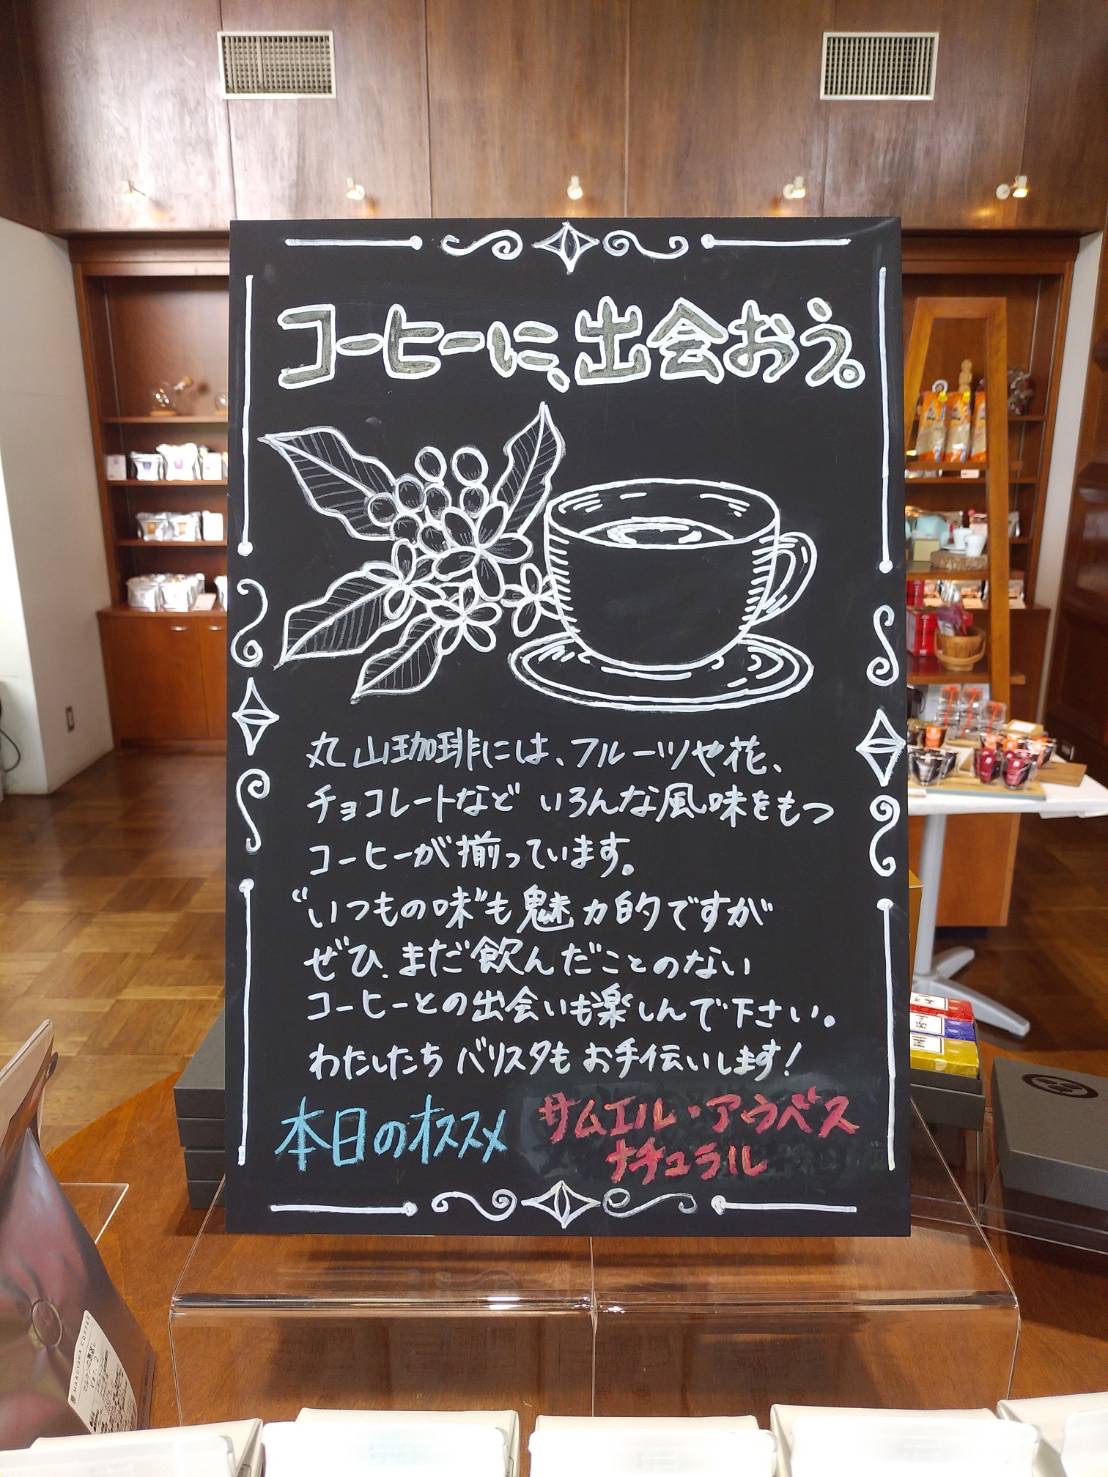 コーヒーに、出会おう。
丸山珈琲には、フルーツや花、
チョコレートなど いろんな風味をもつ
コーヒーが揃っています。
"いつもの味"も魅力的ですが
ぜひ、まだ飲んだことのない
コーヒーとの出会いも楽しんで下さい。
わたしたち バリスタも お手伝いします!
本日のオススメ
サムエル・アウベス
ナチュラル
MARUYAMA COFFEE